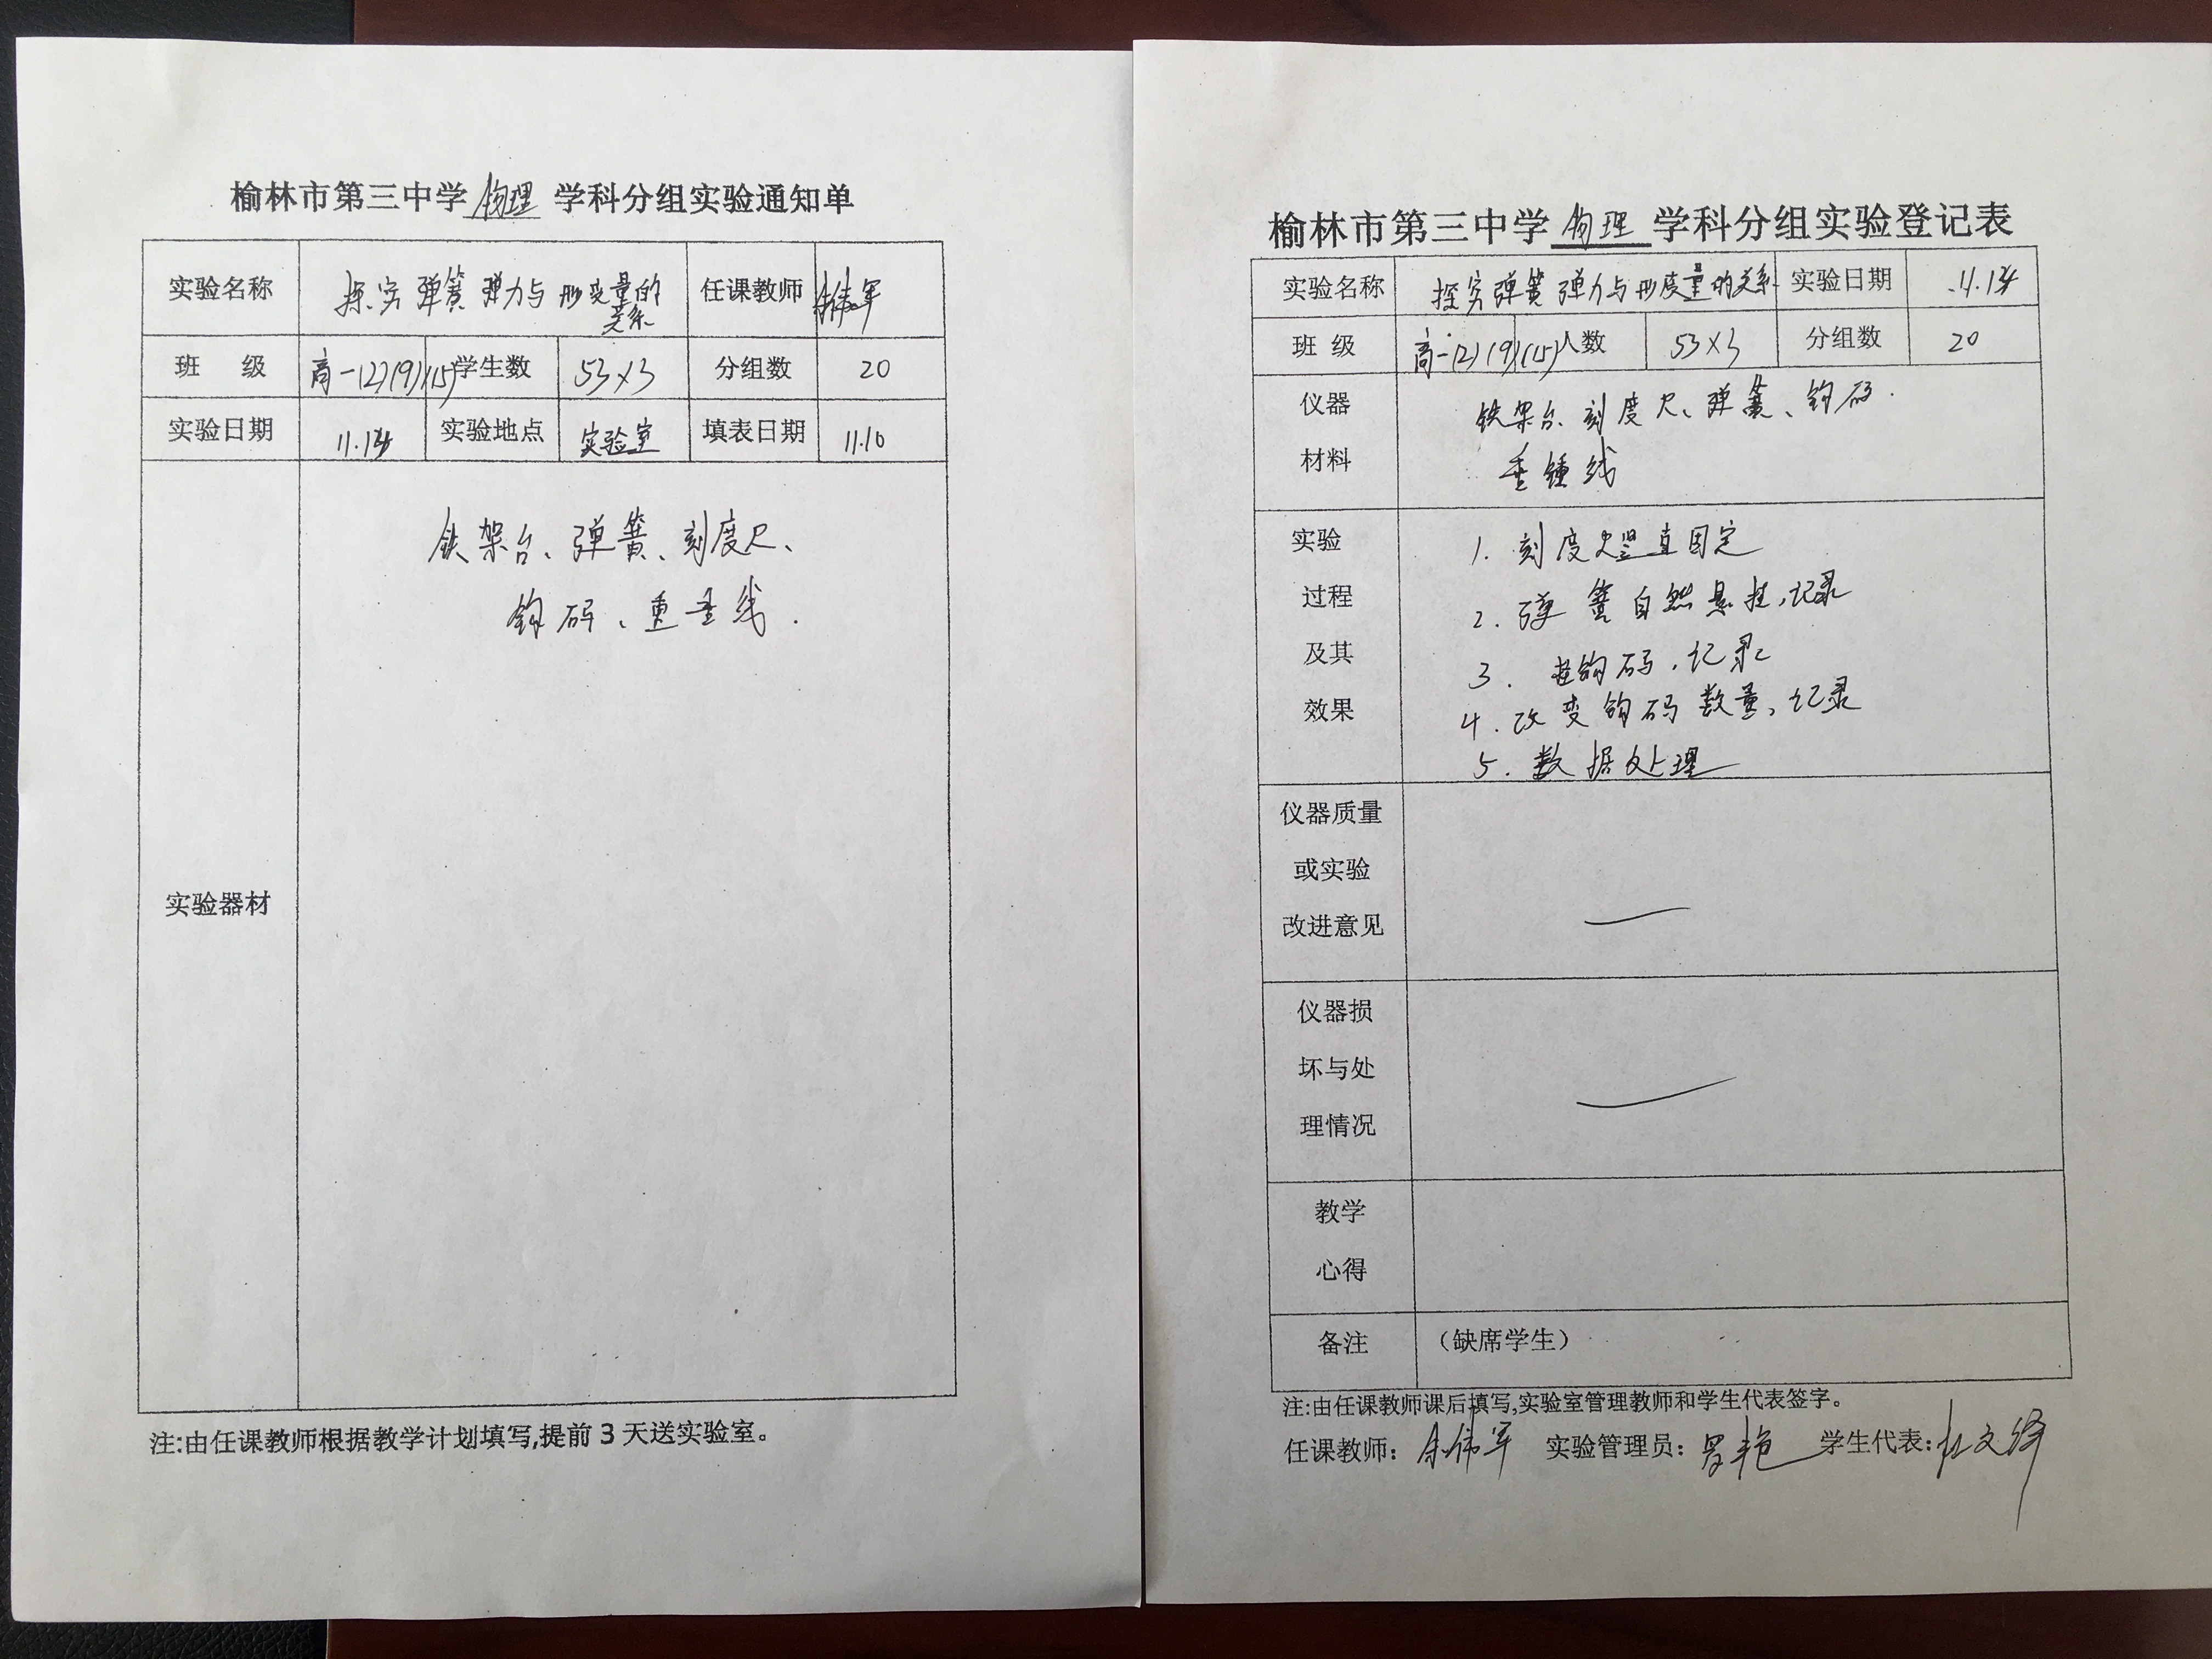 榆林市第三中学 物理 学科分组实验通知单
实验名称 探究弹簧弹力与形变量的关系 任课教师
班 级 高一(2)(9)(15) 学生数 53×3 分组数 20
实验日期 实验地点 实验室 填表日期 11.10
实验器材
铁架台、弹簧、刻度尺、
钩码、重垂线.
注:由任课教师根据教学计划填写,提前3天送实验室。
榆林市第三中学 物理 学科分组实验登记表
实验名称 探究弹簧弹力与形变量的关系 实验日期
班 级 高一(2)(9)(15) 人数 53×3 分组数 20
仪器材料
铁架台、刻度尺、弹簧、钩码.
重锤线
实验过程及其效果
1. 刻度尺竖直固定
2. 弹簧自然悬挂,记录
3. 挂钩码,记录
4. 改变钩码数量,记录
5. 数据处理
仪器质量
或实验
改进意见
仪器损
坏与处
理情况
教学
心得
备注 (缺席学生)
注:由任课教师课后填写,实验室管理教师和学生代表签字。
任课教师: 实验管理员: 学生代表: